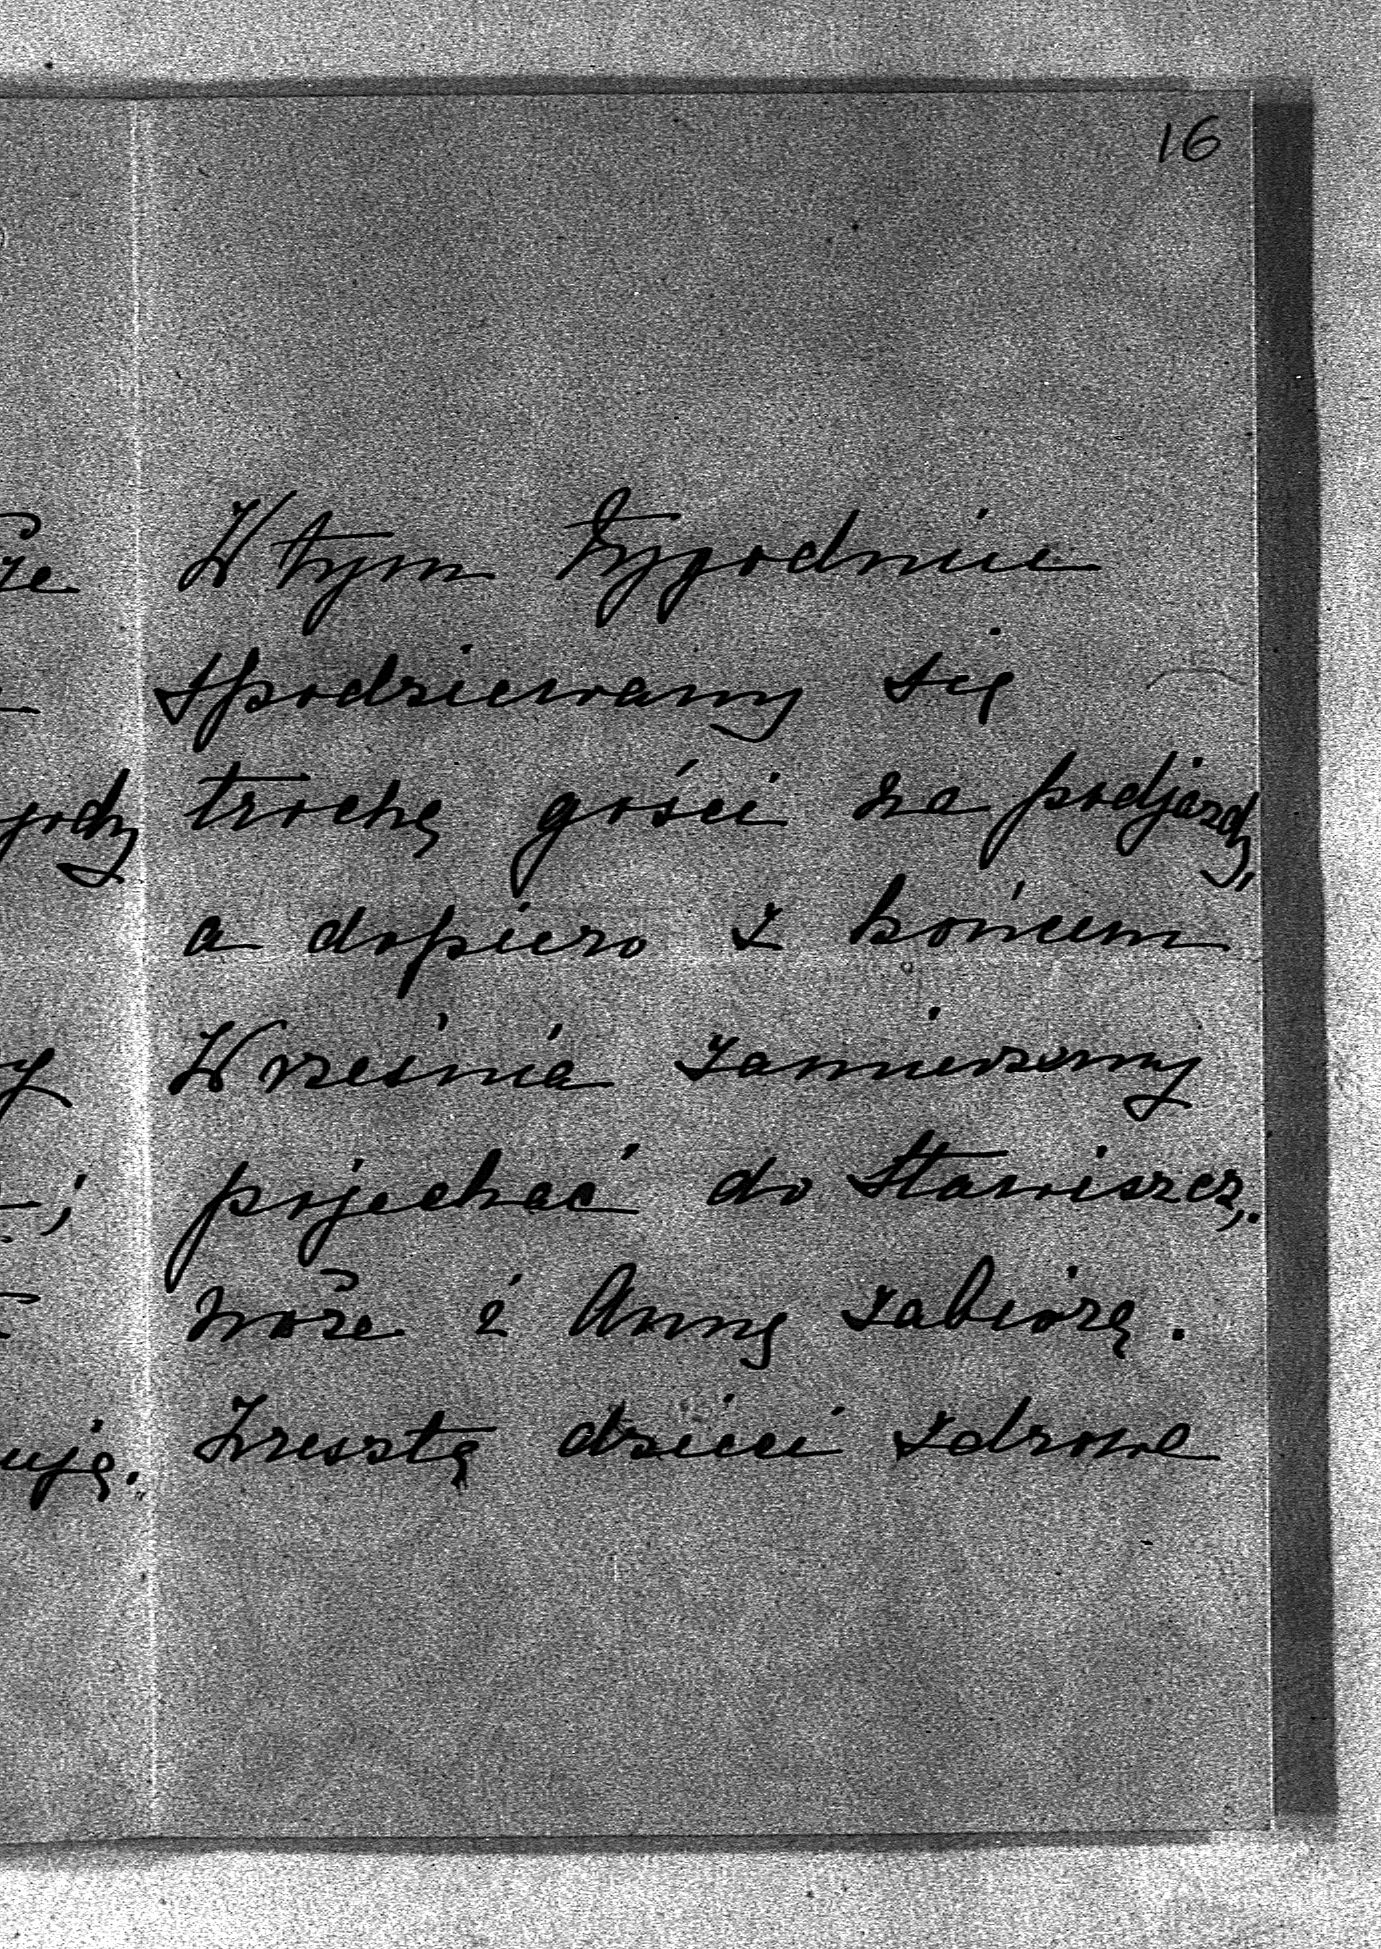 16
W tym tygodniu
spodziewamy się
trochę gości na podjazdy,
a dopiero z końcem
Września zamierzamy
pojechać do Stawiszcz,.
może i Annę zabiorę.
Zresztą dzieci zdrowe